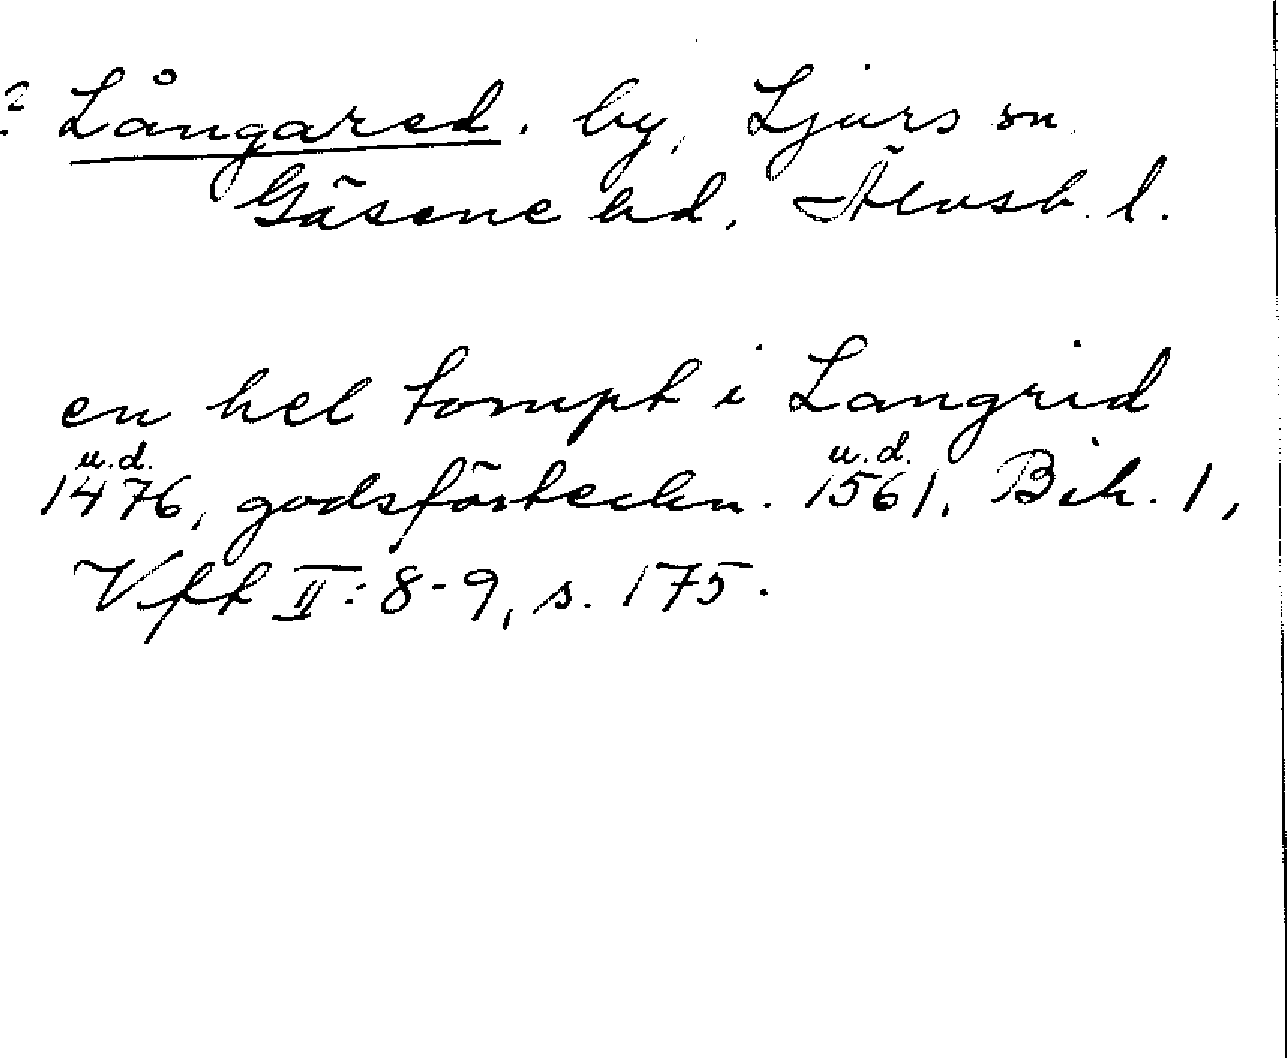 ? Långared, by, Ljurs sn
Gäsene hd, Älvsb. l.
en hel tompt i Langrid
u.d. u.d.
1476, godsförteckn. 1561, Bih. 1,
Vfft II: 8-9, s. 175.